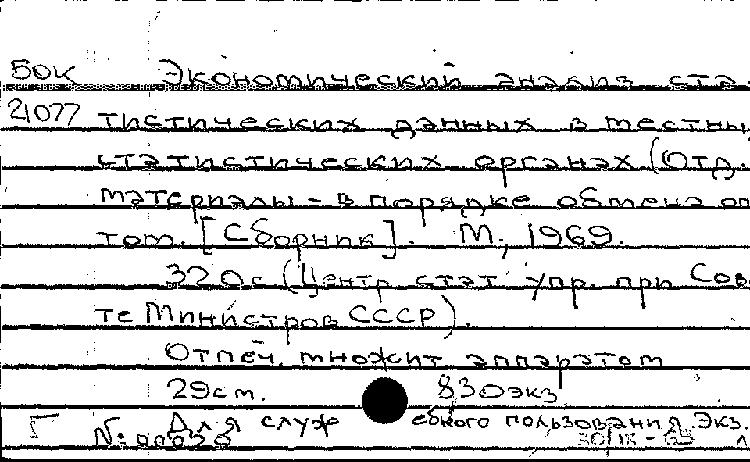 50к Экономический анализ ста-
21077 тистических данных в местны
статистических органах (Отд.
материалы - в порядке обмена оп
том. [Сборник]. М., 1969.
320с (Центр. стат. упр. при Сов
те Министров СССР).
Отпеч. множит. аппаратом
29см. 830экз
Для служебного пользования. Экз.
Г №00038
30/IX-69